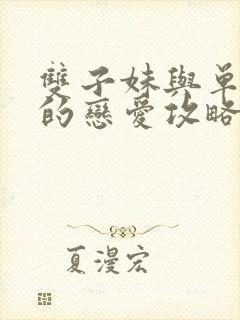 雙子妹與單
的戀愛攻略
夏漫宏